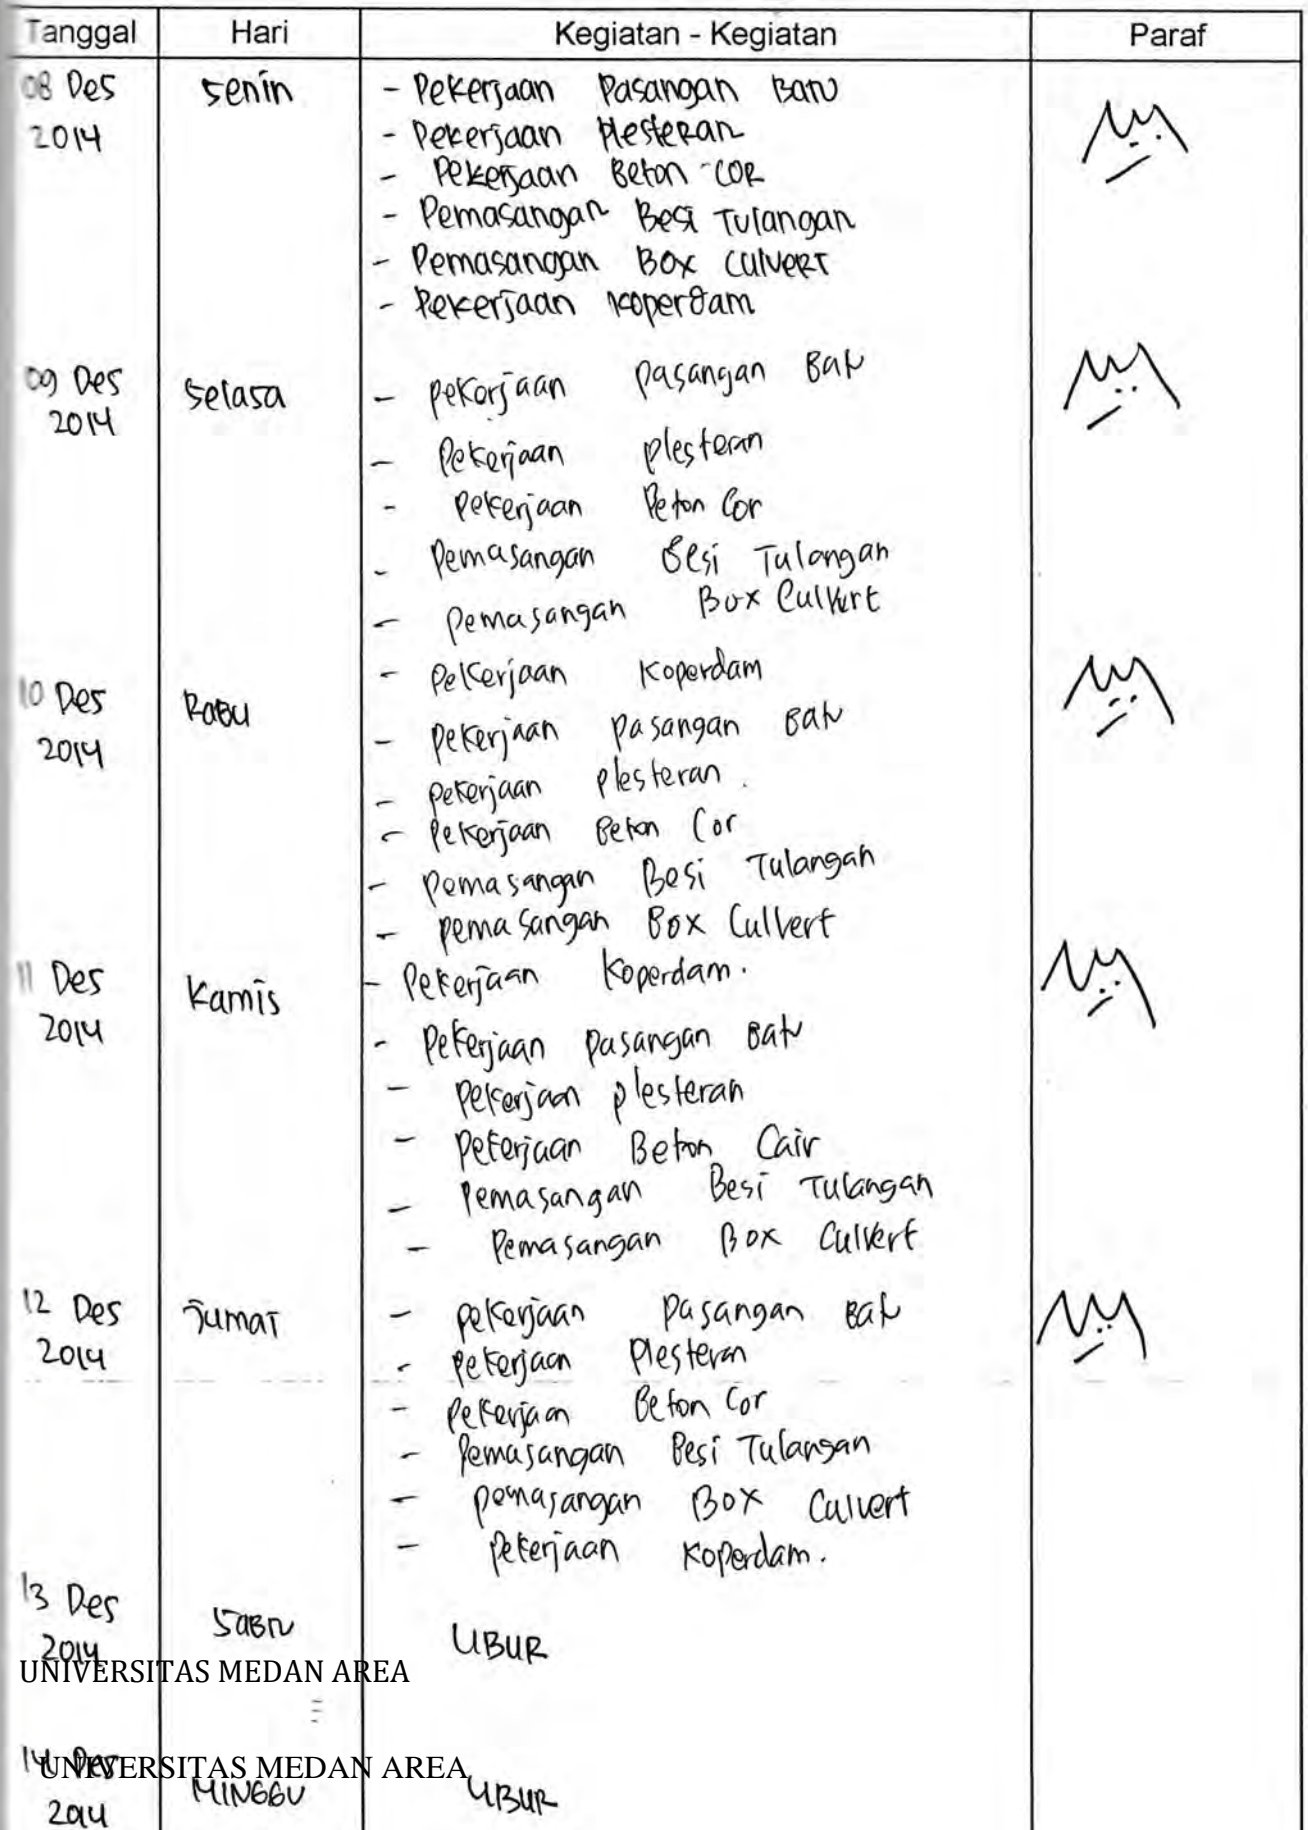 Tanggal Hari Kegiatan - Kegiatan Paraf
08 Des Senin - Pekerjaan Pasangan Batu
2014 - Pekerjaan Plesteran
- Pekerjaan Beton Cor
- Pemasangan Besi Tulangan
- Pemasangan Box Culvert
- Pekerjaan Koperdam
09 Des Selasa - Pekerjaan Pasangan Batu
2014
- Pekerjaan Plesteran
- Pekerjaan Beton Cor
- Pemasangan Besi Tulangan
- Pemasangan Box Culvert
- Pekerjaan Koperdam
10 Des Rabu - Pekerjaan Pasangan Batu
2014
- Pekerjaan Plesteran.
- Pekerjaan Beton Cor
- Pemasangan Besi Tulangan
- Pemasangan Box Cullvert
11 Des Kamis - Pekerjaan Koperdam.
2014 - Pekerjaan Pasangan Batu
- Pekerjaan Plesteran
- Pekerjaan Beton Cair
- Pemasangan Besi Tulangan
- Pemasangan Box Culvert
12 Des Jumat - Pekerjaan Pasangan Batu
2014 - Pekerjaan Plesteran
- Pekerjaan Beton Cor
- Pemasangan Besi Tulangan
- Pemasangan Box Culvert
- Pekerjaan Koperdam.
13 Des Sabtu LIBUR
2014
UNIVERSITAS MEDAN AREA
14 Des MINGGU LIBUR
UNIVERSITAS MEDAN AREA
2014